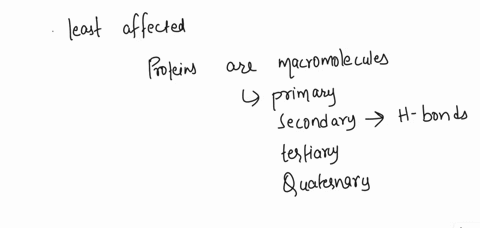 least affected
Proteins are macromolecules
↳ primary
Secondary → H-bonds
tertiary
Quaternary